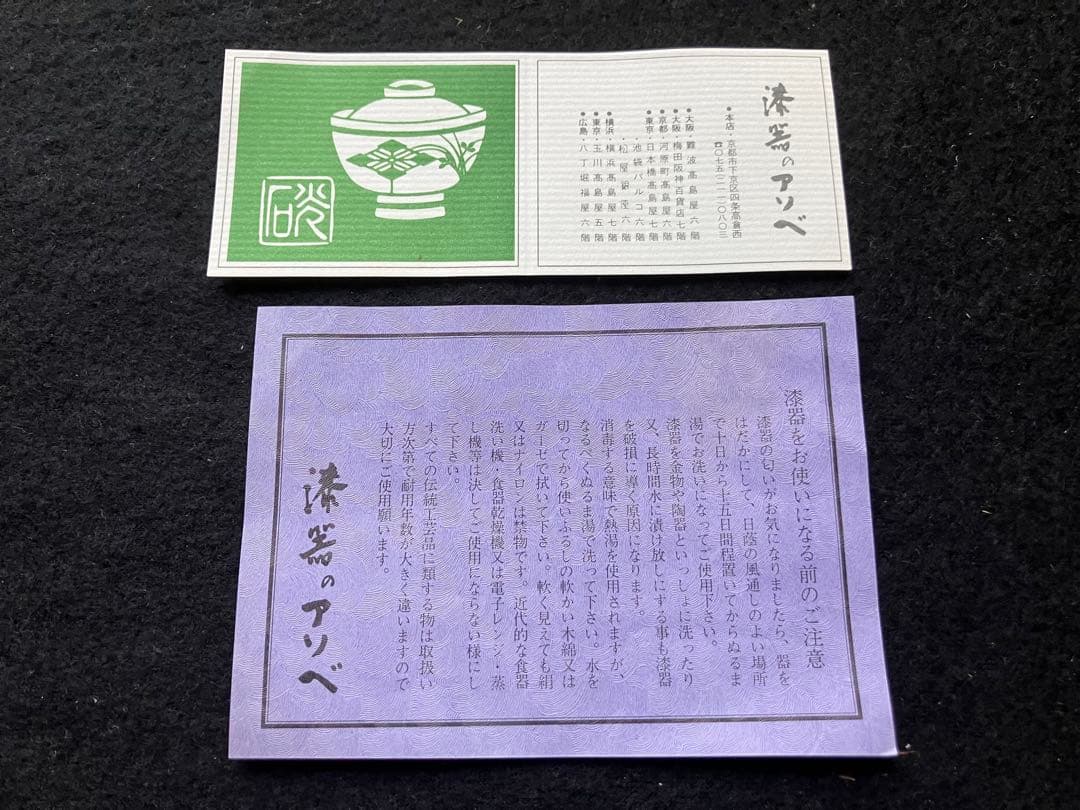 漆器のアソベ
●本店・京都市下京区四条高倉西
☎〇七五(二一一)〇八〇三
●大阪・難波高島屋六階
●大阪・梅田阪神百貨店七階
●京都・河原町高島屋六階
●東京・日本橋高島屋七階
・池袋パルコ六階
・松屋銀座六階
●横浜・横浜高島屋七階
●東京・玉川高島屋五階
●広島・八丁堀福屋六階
漆器をお使いになる前のご注意
漆器の匂いがお気になりましたら、器を
はだかにして、日蔭の風通しのよい場所
で十日から十五日間程置いてからぬるま
湯でお洗いになってご使用下さい。
漆器を金物や陶器といっしょに洗ったり
又、長時間水に漬け放しにする事も漆器
を破損に導く原因になります。
消毒する意味で熱湯を使用されますが、
なるべくぬるま湯で洗って下さい。水を
切ってから使いふるしの軟かい木綿又は
ガーゼで拭いて下さい。軟く見えても絹
又はナイロンは禁物です。近代的な食器
洗い機・食器乾燥機又は電子レンジ・蒸
し機等は決してご使用にならない様にし
て下さい。
すべての伝統工芸品に類する物は取扱い
方次第で耐用年数が大きく違いますので
大切にご使用願います。
漆器のアソベ